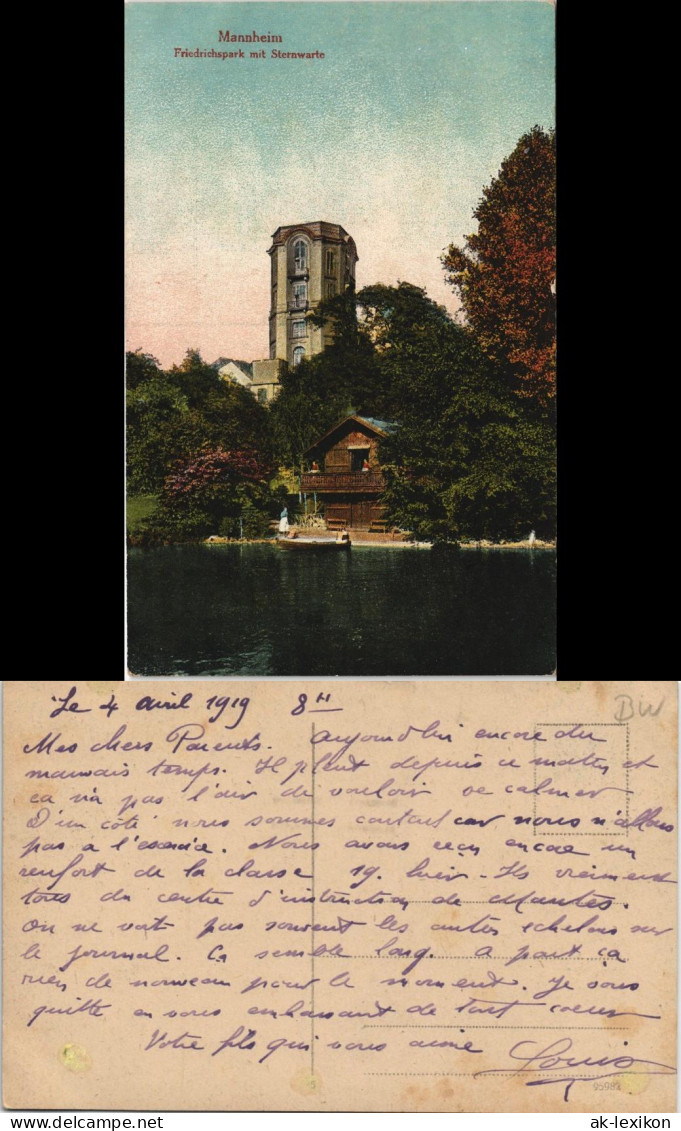 Mannheim
Friedrichspark mit Sternwarte
Le 4 avril 1919 8H
BW
Mes chers Parents. Aujourd'hui encore du
mauvais temps. Il pleut depuis ce matin et
ça n'a pas l'air de vouloir se calmer
D'un côté nous sommes contents car nous n'allons
pas a l'exercice. Nous avons reçu encore un
renfort de la classe 19. hier - Ils viennent
tous du centre d'instruction de Mantes.
On ne voit pas souvent les autres echelons sur
le journal. Ca semble long. A part ça
rien de nouveau pour le moment. Je vous
quitte en vous embrassant de tout coeur
Votre fils qui vous aime Louis
95983
www.ak-lexikon.de
ak-lexikon